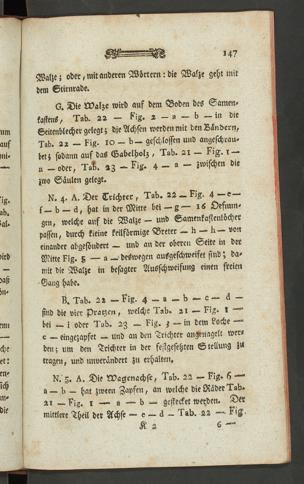 147
Walze; oder, mit anderen Wörtern: die Walze geht mit
dem Stirnrade.
G. Die Walze wird auf dem Boden des Samen-
kastens, Tab. 22 — Fig. 2 — a — b — in die
Seitenblecher gelegt; die Achsen werden mit den Bändern,
Tab. 22 — Fig. 10 — b — geschlossen und angeschrau-
bet; sodann auf das Gabelholz, Tab. 21 — Fig. 1 —
a — oder, Tab. 23 — Fig. 4 — a — zwischen die
zwo Säulen gelegt.
N. 4. A. Der Trichter, Tab. 22 — Fig. 4 — e —
f — b — d, hat in der Mitte bei — g — 16 Oefnun-
gen, welche auf die Walze — und Samenkastenlöcher
passen, durch kleine keilförmige Breter — h — h — von
einander abgesöndert — und an der oberen Seite in der
Mitte Fig. 5 — a — deswegen ausgeschweifet sind; da-
mit die Walze in besagter Ausschweifung einen freien
Gang habe.
B. Tab. 22 — Fig. 4 — a — b — c — d —
sind die vier Pratzen, welche Tab. 21 — Fig. 1 —
bei — i oder Tab. 23 — Fig. 3 — in dem Loche —
c — eingezapfet — und an den Trichter angenagelt wer-
den; um den Trichter in der festgesetzten Stellung zu
tragen, und unverändert zu erhalten,
N. 5. A. Die Wagenachse, Tab. 22 — Fig. 6 —
a — b — hat zween Zapfen, an welche die Räder Tab.
21 — Fig. 1 — a — b — gestecket werden. Der
mittlere Theil der Achse — c — d — Tab. 22 — Fig.
K 2
6 —